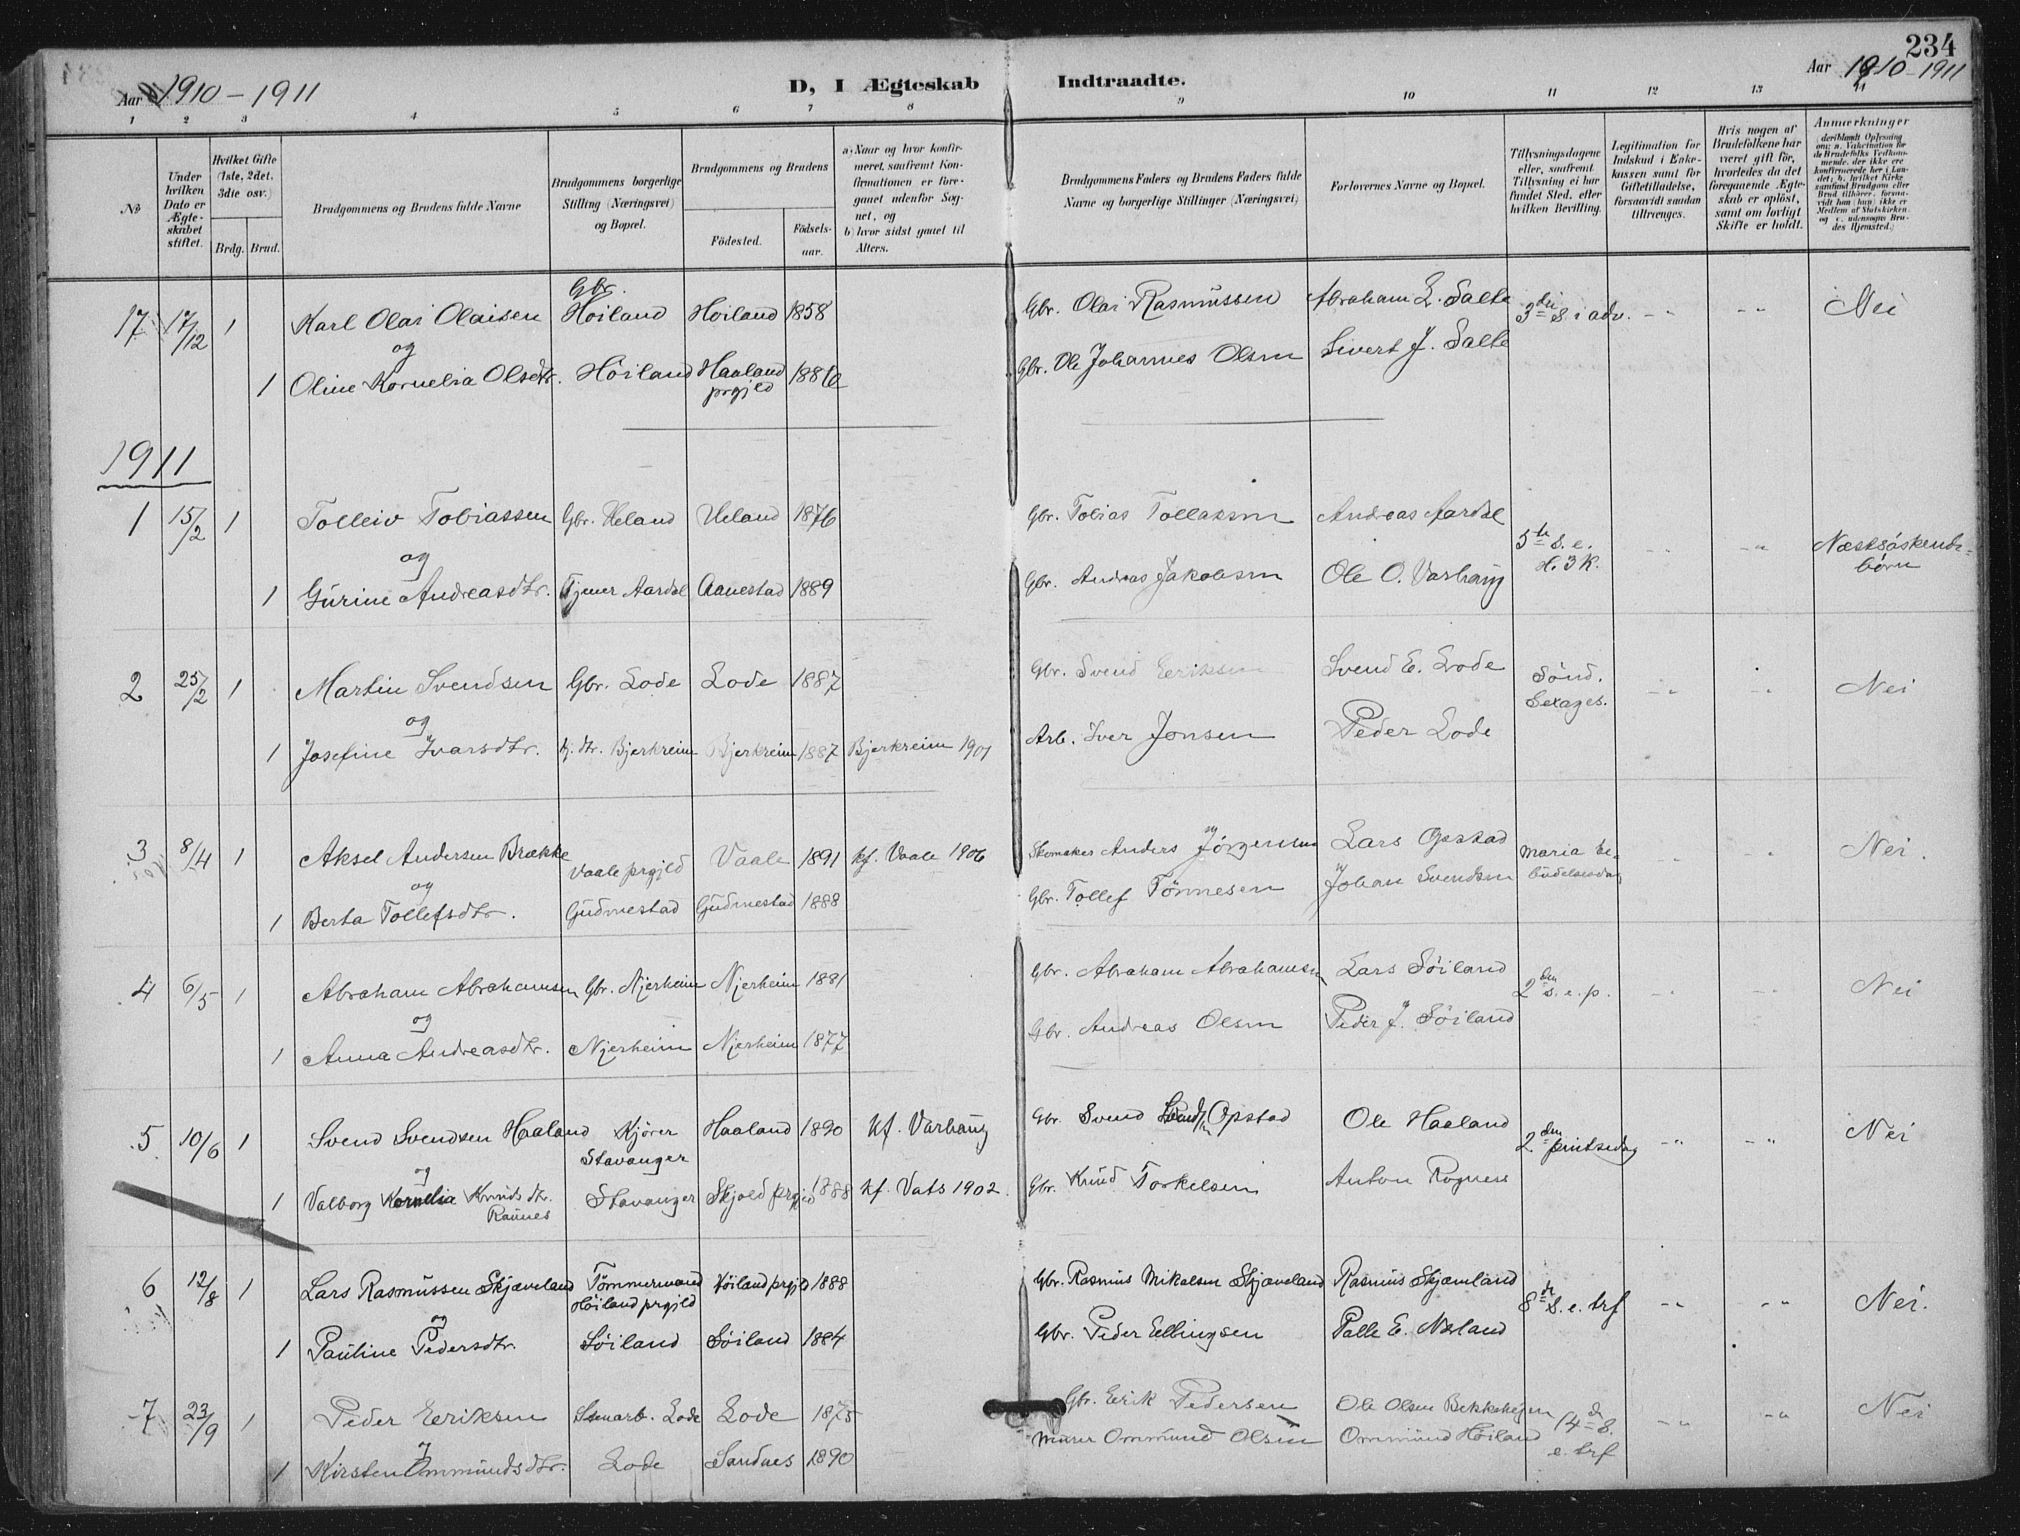 234
Aar 1910-1911
D, I Ægteskab Indtraadte.
Aar 1910-1911
1 2 3 4 5 6 7 8 9 10 11 12 13 14
No
Under hvilken Dato er Ægteskabet stiftet.
Hvilket Gifte (1ste, 2det, 3die osv.)
Brdg. Brud.
Brudgommens og Brudens fulde Navne
Brudgommens borgerlige Stilling (Næringsvei) og Bopæl.
Brudgommens og Brudens
Födested. Födselsaar.
a) Naar og hvor konfirmeret, saafremt Konfirmationen er foregaaet udenfor Sognet, og
b) hvor sidst gaaet til Alters.
Brudgommens Faders og Brudens Faders fulde Navne og borgerlige Stillinger (Næringsvei)
Forlovernes Navne og Bopæl.
Tillysningsdagene eller, saafremt Tillysning ei har fundet Sted, efter hvilken Bevilling.
Legitimation for Indskud i Enkekassen samt for Giftetilladelse, forsaavidt saadan tiltrænges.
Hvis nogen af Brudefolkene har været gift för, hvorledes da det foregaaende Ægteskab er oplöst, samt om lovligt Skifte er holdt.
Anmærkninger
deriblandt Oplysning om: a. Vakcination for de Brudefolks Vedkommende, der ikke ere konfirmerede her i Landet; b. hvilket Kirkesamfund Brudgom eller Brud tilhörer, forsaavidt han (hun) ikke er Medlem af Statskirken, og c. udensogns Brudes Hjemsted.)
17 17/12 1 Karl Olai Olaisen Gbr. Höiland Höiland 1858 Gbr. Olai Rasmussen Abraham L. Salte 3die S. i adv. -"- -"- Nei
og
1 Oline Kornelia Olsdtr. Höiland Haaland prgjld Gbr. Ole Johannes Olsen Sivert J. Salte
1911
1 15/2 1 Tolleiv Tobiassen Gbr. Ueland Ueland 1876 Gbr. Tobias Tollaksen Andreas Aardal 5te S. e. H. 3 K. -"- -"- Næstsöskendebörn
og
1 Gurine Andreasdtr. Tjener Aardal Aanestad 1889 Gbr. Andreas Jakobsen Ole O. Varhaug
2 25/2 1 Martin Svendsen Gbr. Lode Lode 1887 Gbr. Svend Eeriksen Svend E. Lode Sönd. Sexages. -"- -"- Nei
og
1 Josefine Ivarsdtr. Bjerkreim Bjerkreim 1887 Bjerkreim 1901 Arb. Iver Jonsen Peder Lode
3 8/4 1 Aksel Andersen Brække Vaale prgjld Vaale 1891 kf. Vaale 1906 Skomaker Anders Jörgensen Lars Opstad Maria Bebudelsesdag -"- -"- Nei.
og
1 Berta Tollefsdtr. Gudmestad Gudmestad 1888 Gbr. Tollef Tönnesen Johan Svendsen
4 6/5 1 Abraham Abrahamsen Gbr. Njerheim Njerheim 1881 Gbr. Abraham Abrahamsen Lars Söiland 2den S. e. p. -"- -"- Nei
og
1 Anna Andreasdtr. Njerheim Njerheim 1877 Gbr. Andreas Olsen Peder J. Söiland
5 10/6 1 Svend Svendsen Haaland Kjörer Stavanger Haaland 1890 kf. Varhaug Gbr. Svend Opstad Ole Haaland 2den pintsedag -"- -"- Nei
og
1 Valborg Kornelia Knudsdtr. Raunes Stavanger Skjold prgjld 1888 kf. Vats 1902. Gbr. Knud Torkelsen Anton Rognes
6 12/8 1 Lars Rasmussen Skjæveland Tömmermand Höiland prgjld Höiland prgjld 1888 Gbr. Rasmus Mikalsen Skjæveland Rasmus Skjæveland 8de S. e. trf -"- -"- Nei.
og
1 Pauline Pedersdtr. Söiland Söiland 1884 Gbr. Peder Ellingsen Palle E. Næland
7 23/9 1 Peder Eeriksen Lode Lode 1875 Gbr. Eerik Pedersen Ole Olsen Bekkehejen 14de S. e. trf -"- -"- Nei
1 Kirsten Ommundsdtr. Lode Sandnes 1890 Murer Ommund Olsen Ommund Höiland